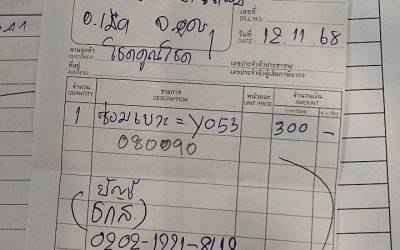 อ.เมือง
เลขที่
BILL NO.
วันที่
DATE: 12.11.68
นามลูกค้า
CUSTOMER โชคคูณโชค
เลขประจำตัวประชาชน/
เลขประจำตัวผู้เสียภาษีอากร
ที่อยู่
ADDRESS
จำนวน รายการ หน่วยละ จำนวนเงิน
QUANTITY DESCRIPTION UNIT PRICE AMOUNT
1 ซ่อมเบาะ = Y053 300 -
080090
บัญชี
(ธกส.
0202-1221-8119